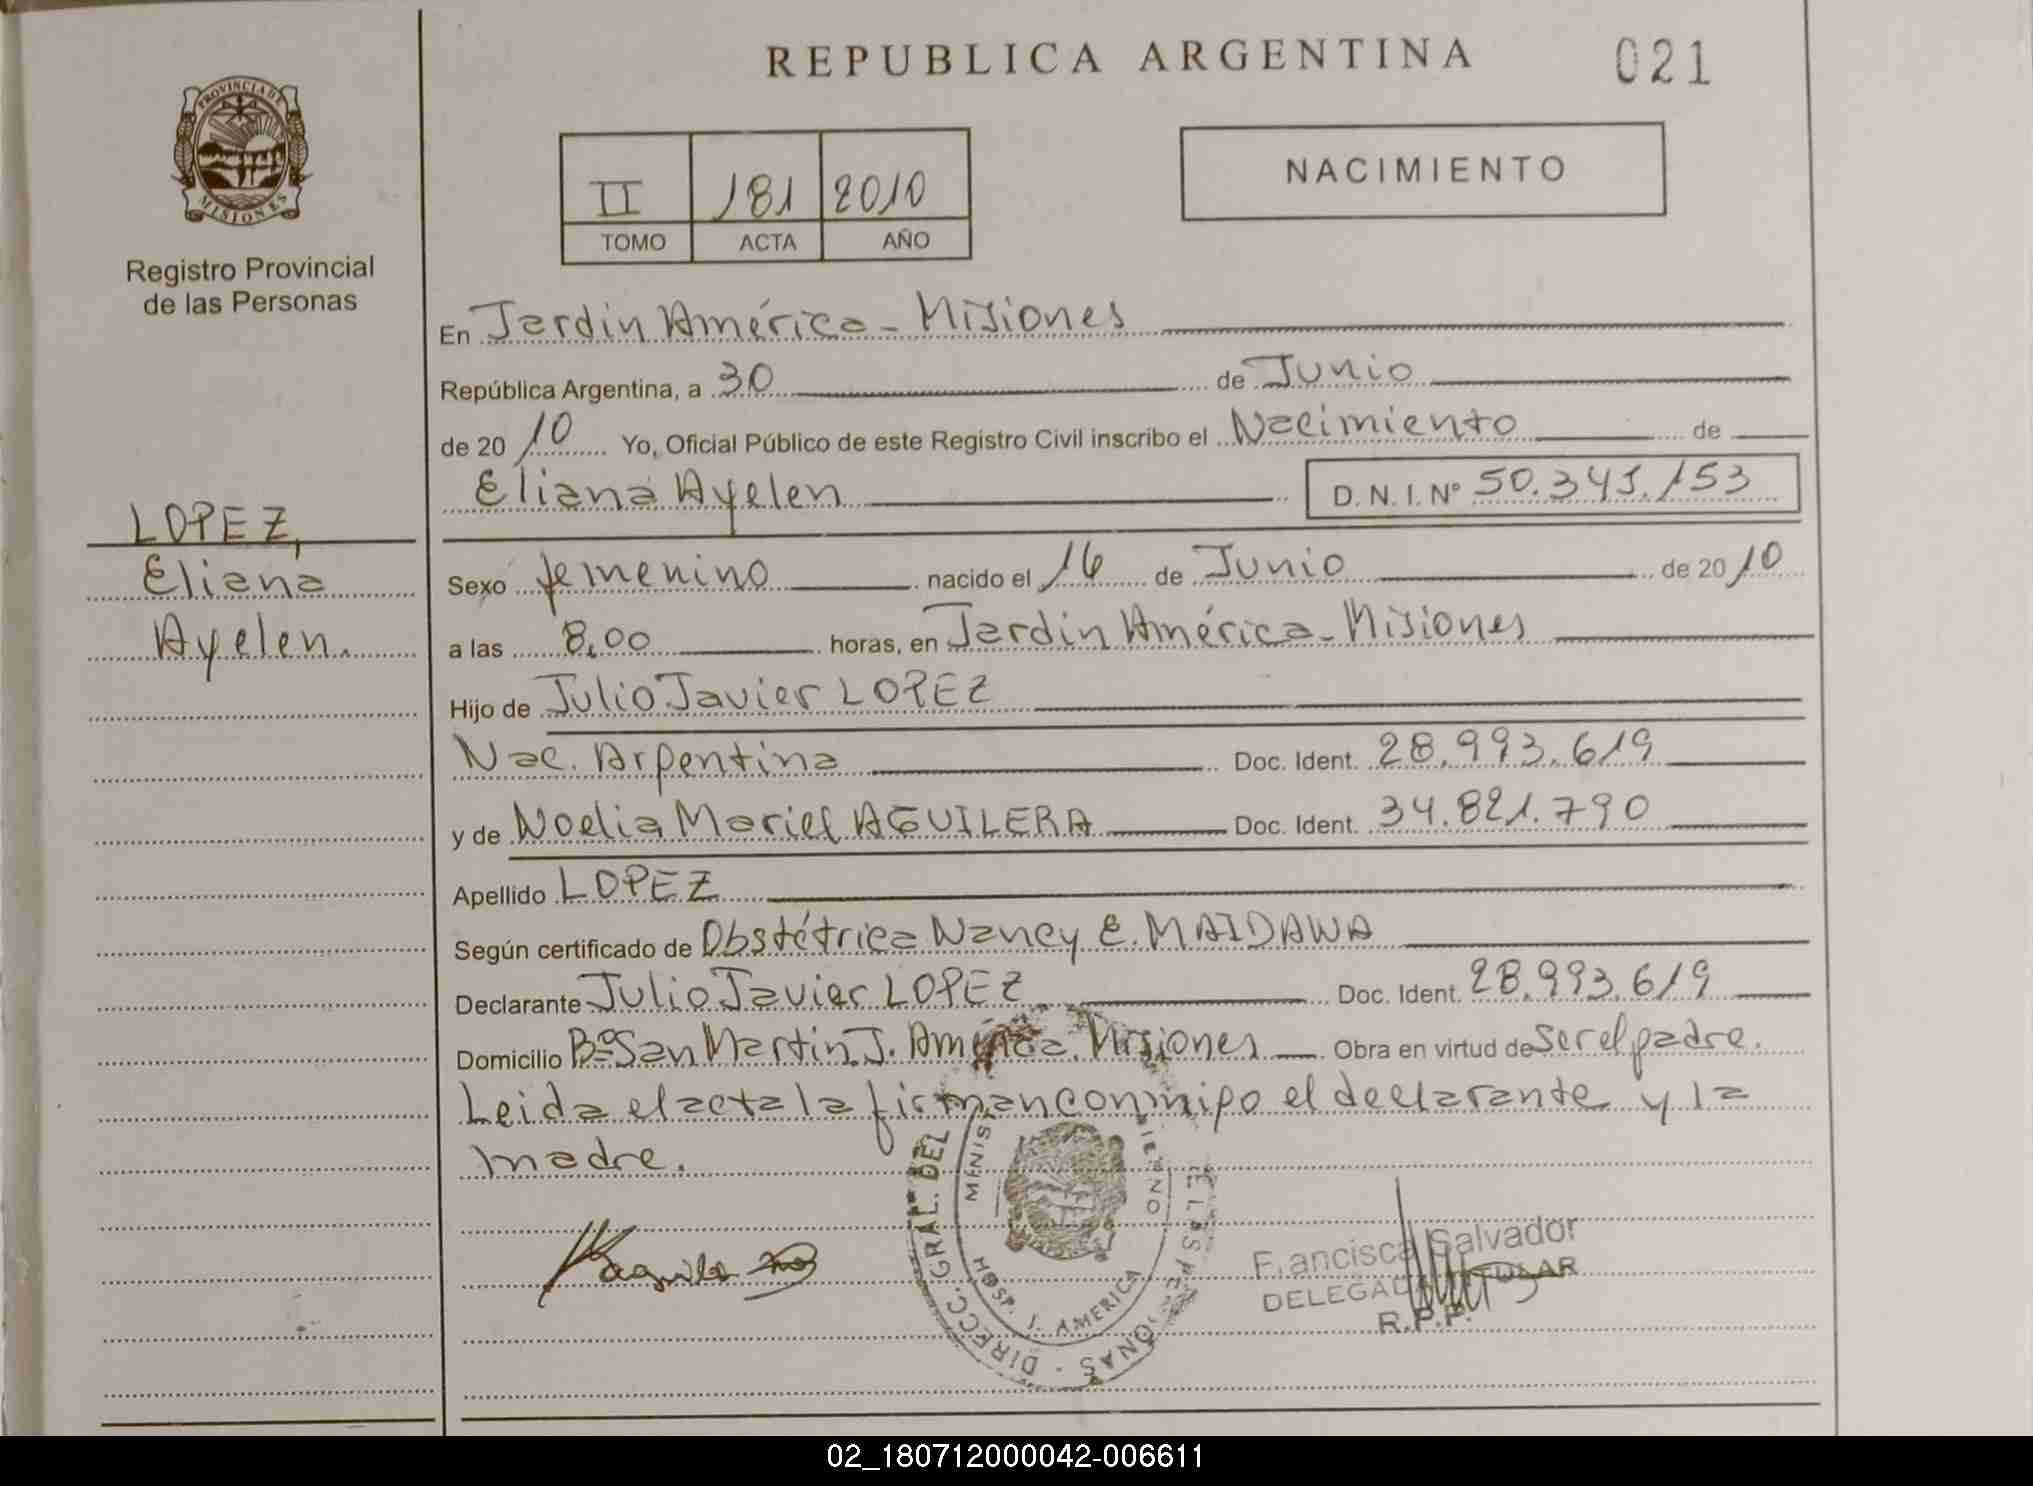 REPUBLICA ARGENTINA
021
PROVINCIA DE
MISIONES
Registro Provincial
de las Personas
II 181 2010
TOMO ACTA AÑO
NACIMIENTO
En Jardin América - Misiones
República Argentina, a 30 de Junio
de 20 10 Yo, Oficial Público de este Registro Civil inscribo el Nacimiento de
Eliana Ayelen D. N. I. Nº 50.341.153
LOPEZ,
Eliana
Ayelen.
Sexo femenino nacido el 16 de Junio de 20 10
a las 8,00 horas, en Jardin América - Misiones
Hijo de Julio Javier LOPEZ
Nac. Argentina Doc. Ident. 28.993.619
y de Noelia Mariel AGUILERA Doc. Ident. 34.821.790
Apellido LOPEZ
Según certificado de Obstétrica Nancy E. MAIDAWA
Declarante Julio Javier LOPEZ Doc. Ident. 28.993.619
Domicilio Bº San Martin. J. América. Misiones Obra en virtud de ser el padre.
Leida el acta la firman conmigo el declarante y la
madre.
DIRECC. GRAL. DEL
HOSP. J. AMERICA
Salvador
R.P.P.
02_180712000042-006611